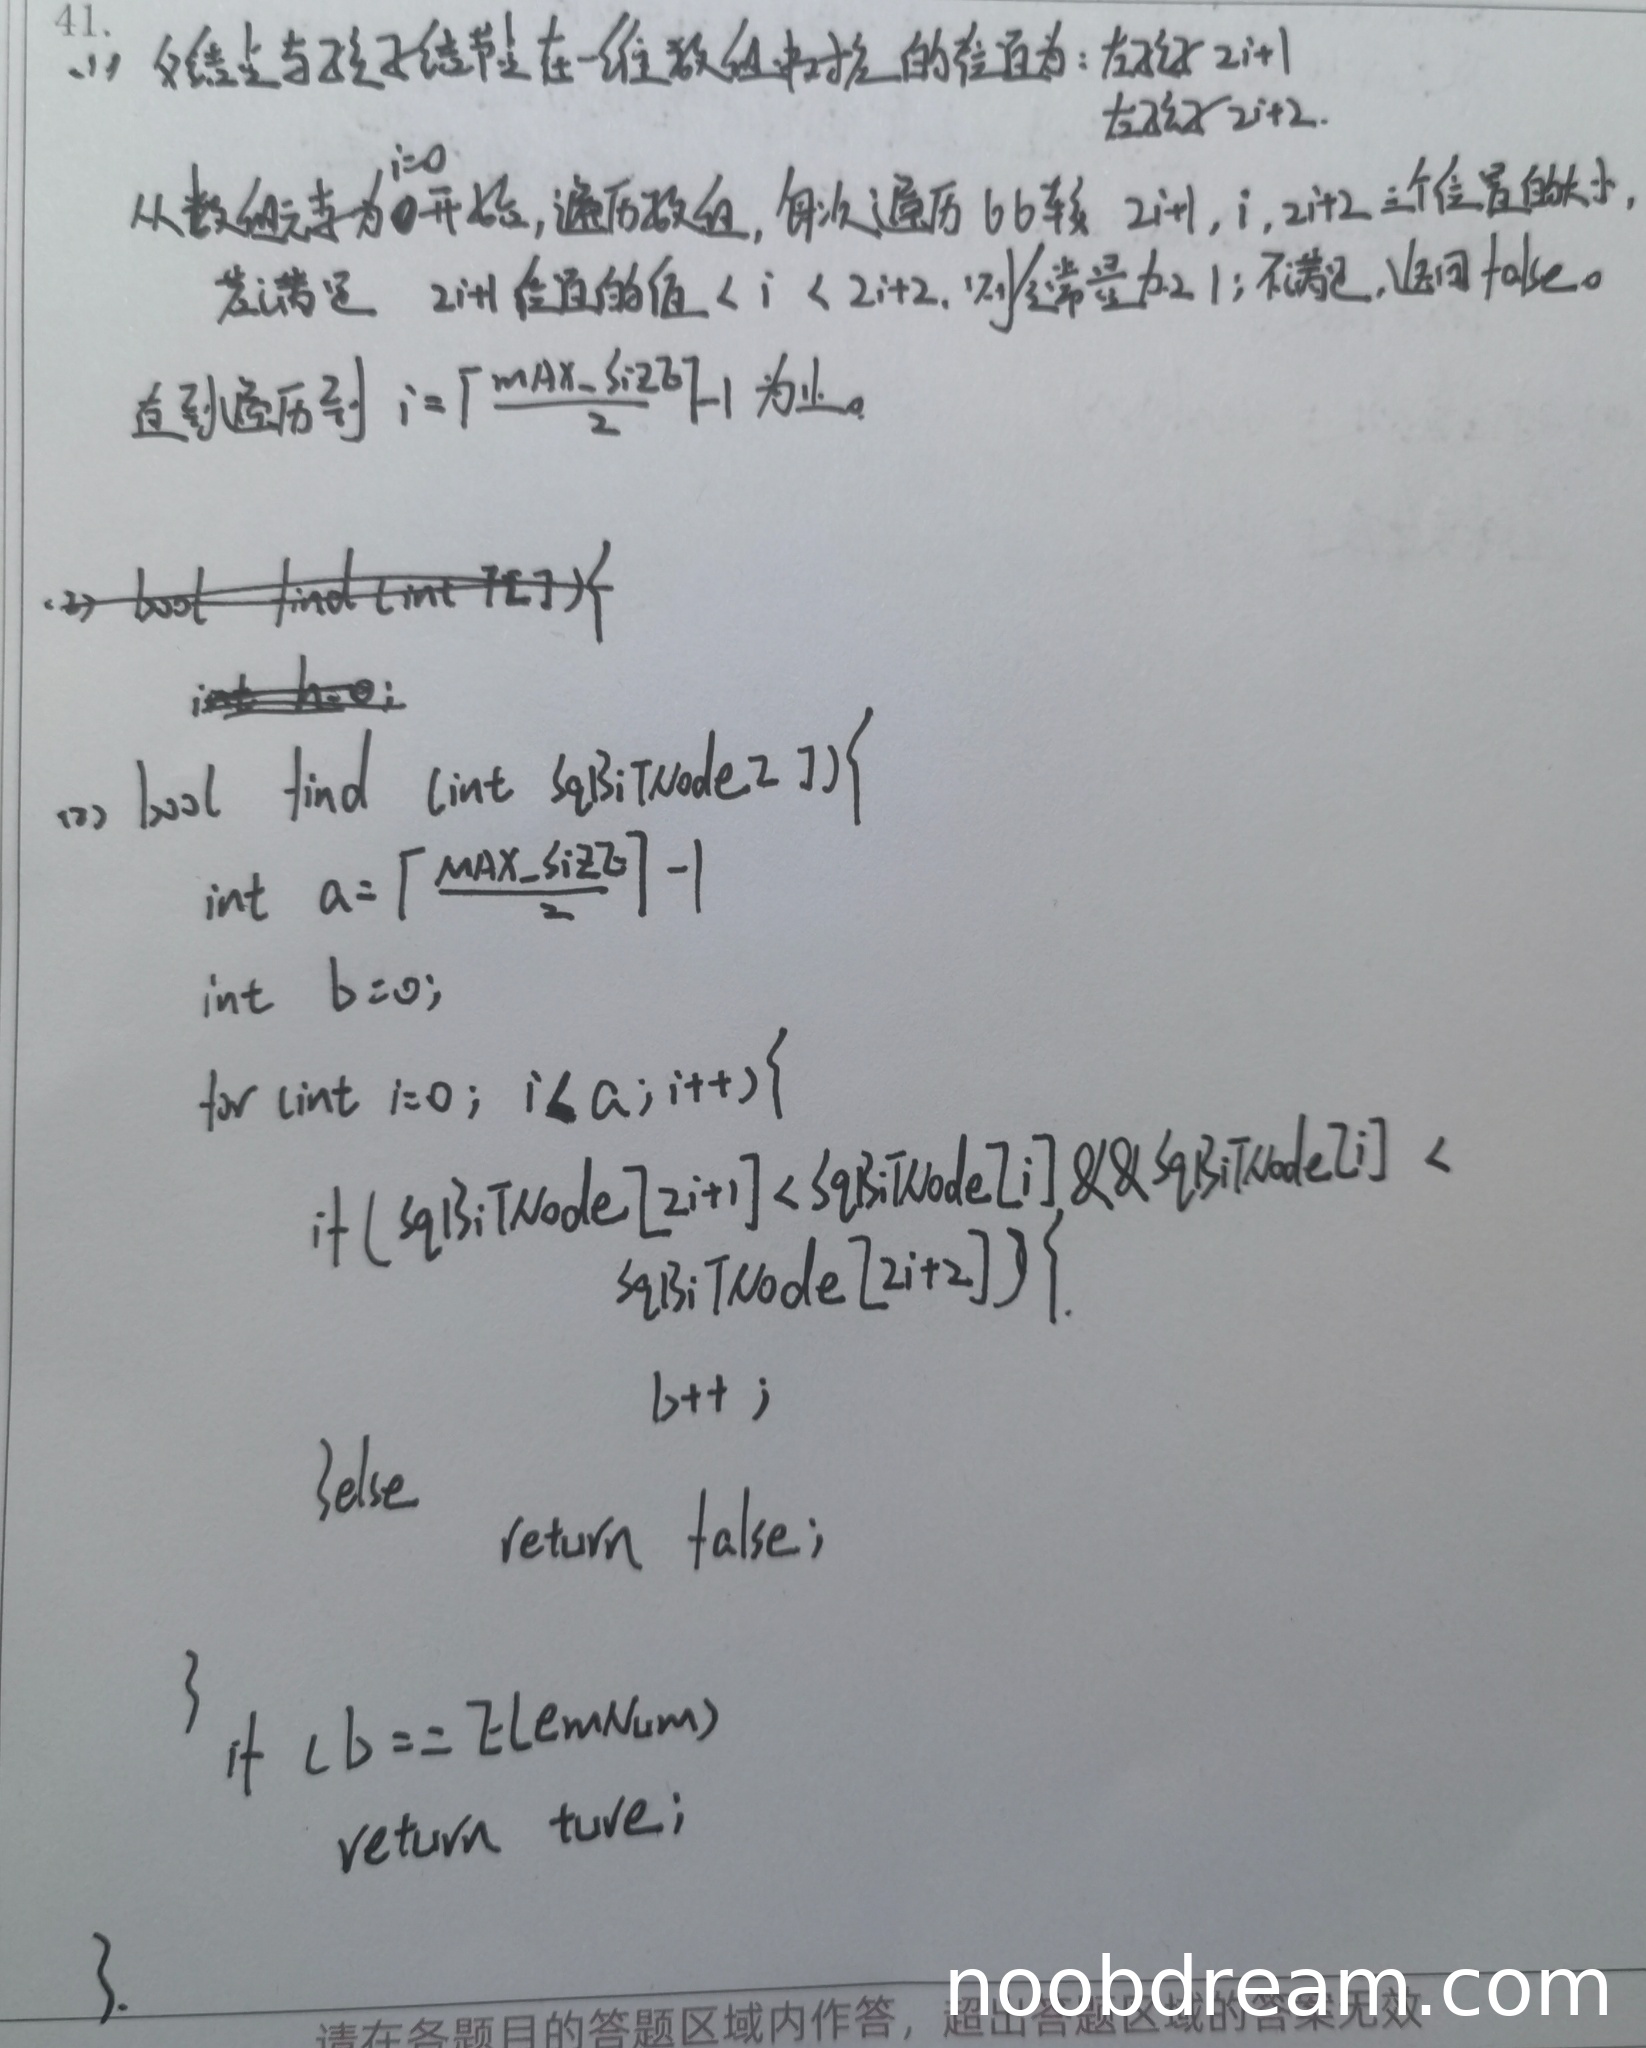 41.
(1) 父结点与孩子结节点在一维数组中对应的位置为：左孩子 2i+1
右孩子 2i+2.
i=0
从数组元素为0开始，遍历数组，每次遍历比较 2i+1, i, 2i+2 三个位置的大小，
若满足 2i+1位置的值 < i < 2i+2. 则 1；不满足，返回false。
直到遍历到 i=⌈MAX_SIZE/2⌉-1 为止。
(2) bool find (int T[]){
int h=0;
(2) bool find (int SqBiTNode[ ]){
int a=⌈MAX_SIZE/2⌉-1
int b=0;
for (int i=0; i< a; i++){
if(SqBiTNode[2i+1]<SqBiTNode[i]&&SqBiTNode[i] <
SqBiTNode[2i+2]){
b++ ;
}else
return false;
}
if (b==ElemNum)
return ture;
}.
请在各题目的答题区域内作答，超出答题区域的答案无效
noobdream.com